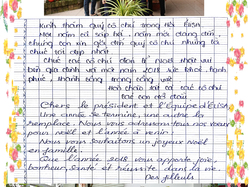 Kính thăm quý cô chú trong Hội EISA.
Một năm cũ sắp hết, năm mới đang đến,
chúng con xin gởi đến quý cô chú những lời
chúc tốt đẹp nhất
Chúc các cô chú đón lễ Noel thật vui
bên gia đình và một năm 2018 sức khỏe, hạnh
phúc, thành công trong công việc.
các cô chú
các con đỡ đầu
Chers le président et l'équipe d'EISA,
Une année se termine, une autre la
remplace. Nous vous adressons tous nos vœux
pour noël et l'année à venir.
Nous vous souhaitons un joyeux noël
en famille.
Que l'année 2018 vous apporte joie,
bonheur, santé et réussite dans la vie.
Des filleuls